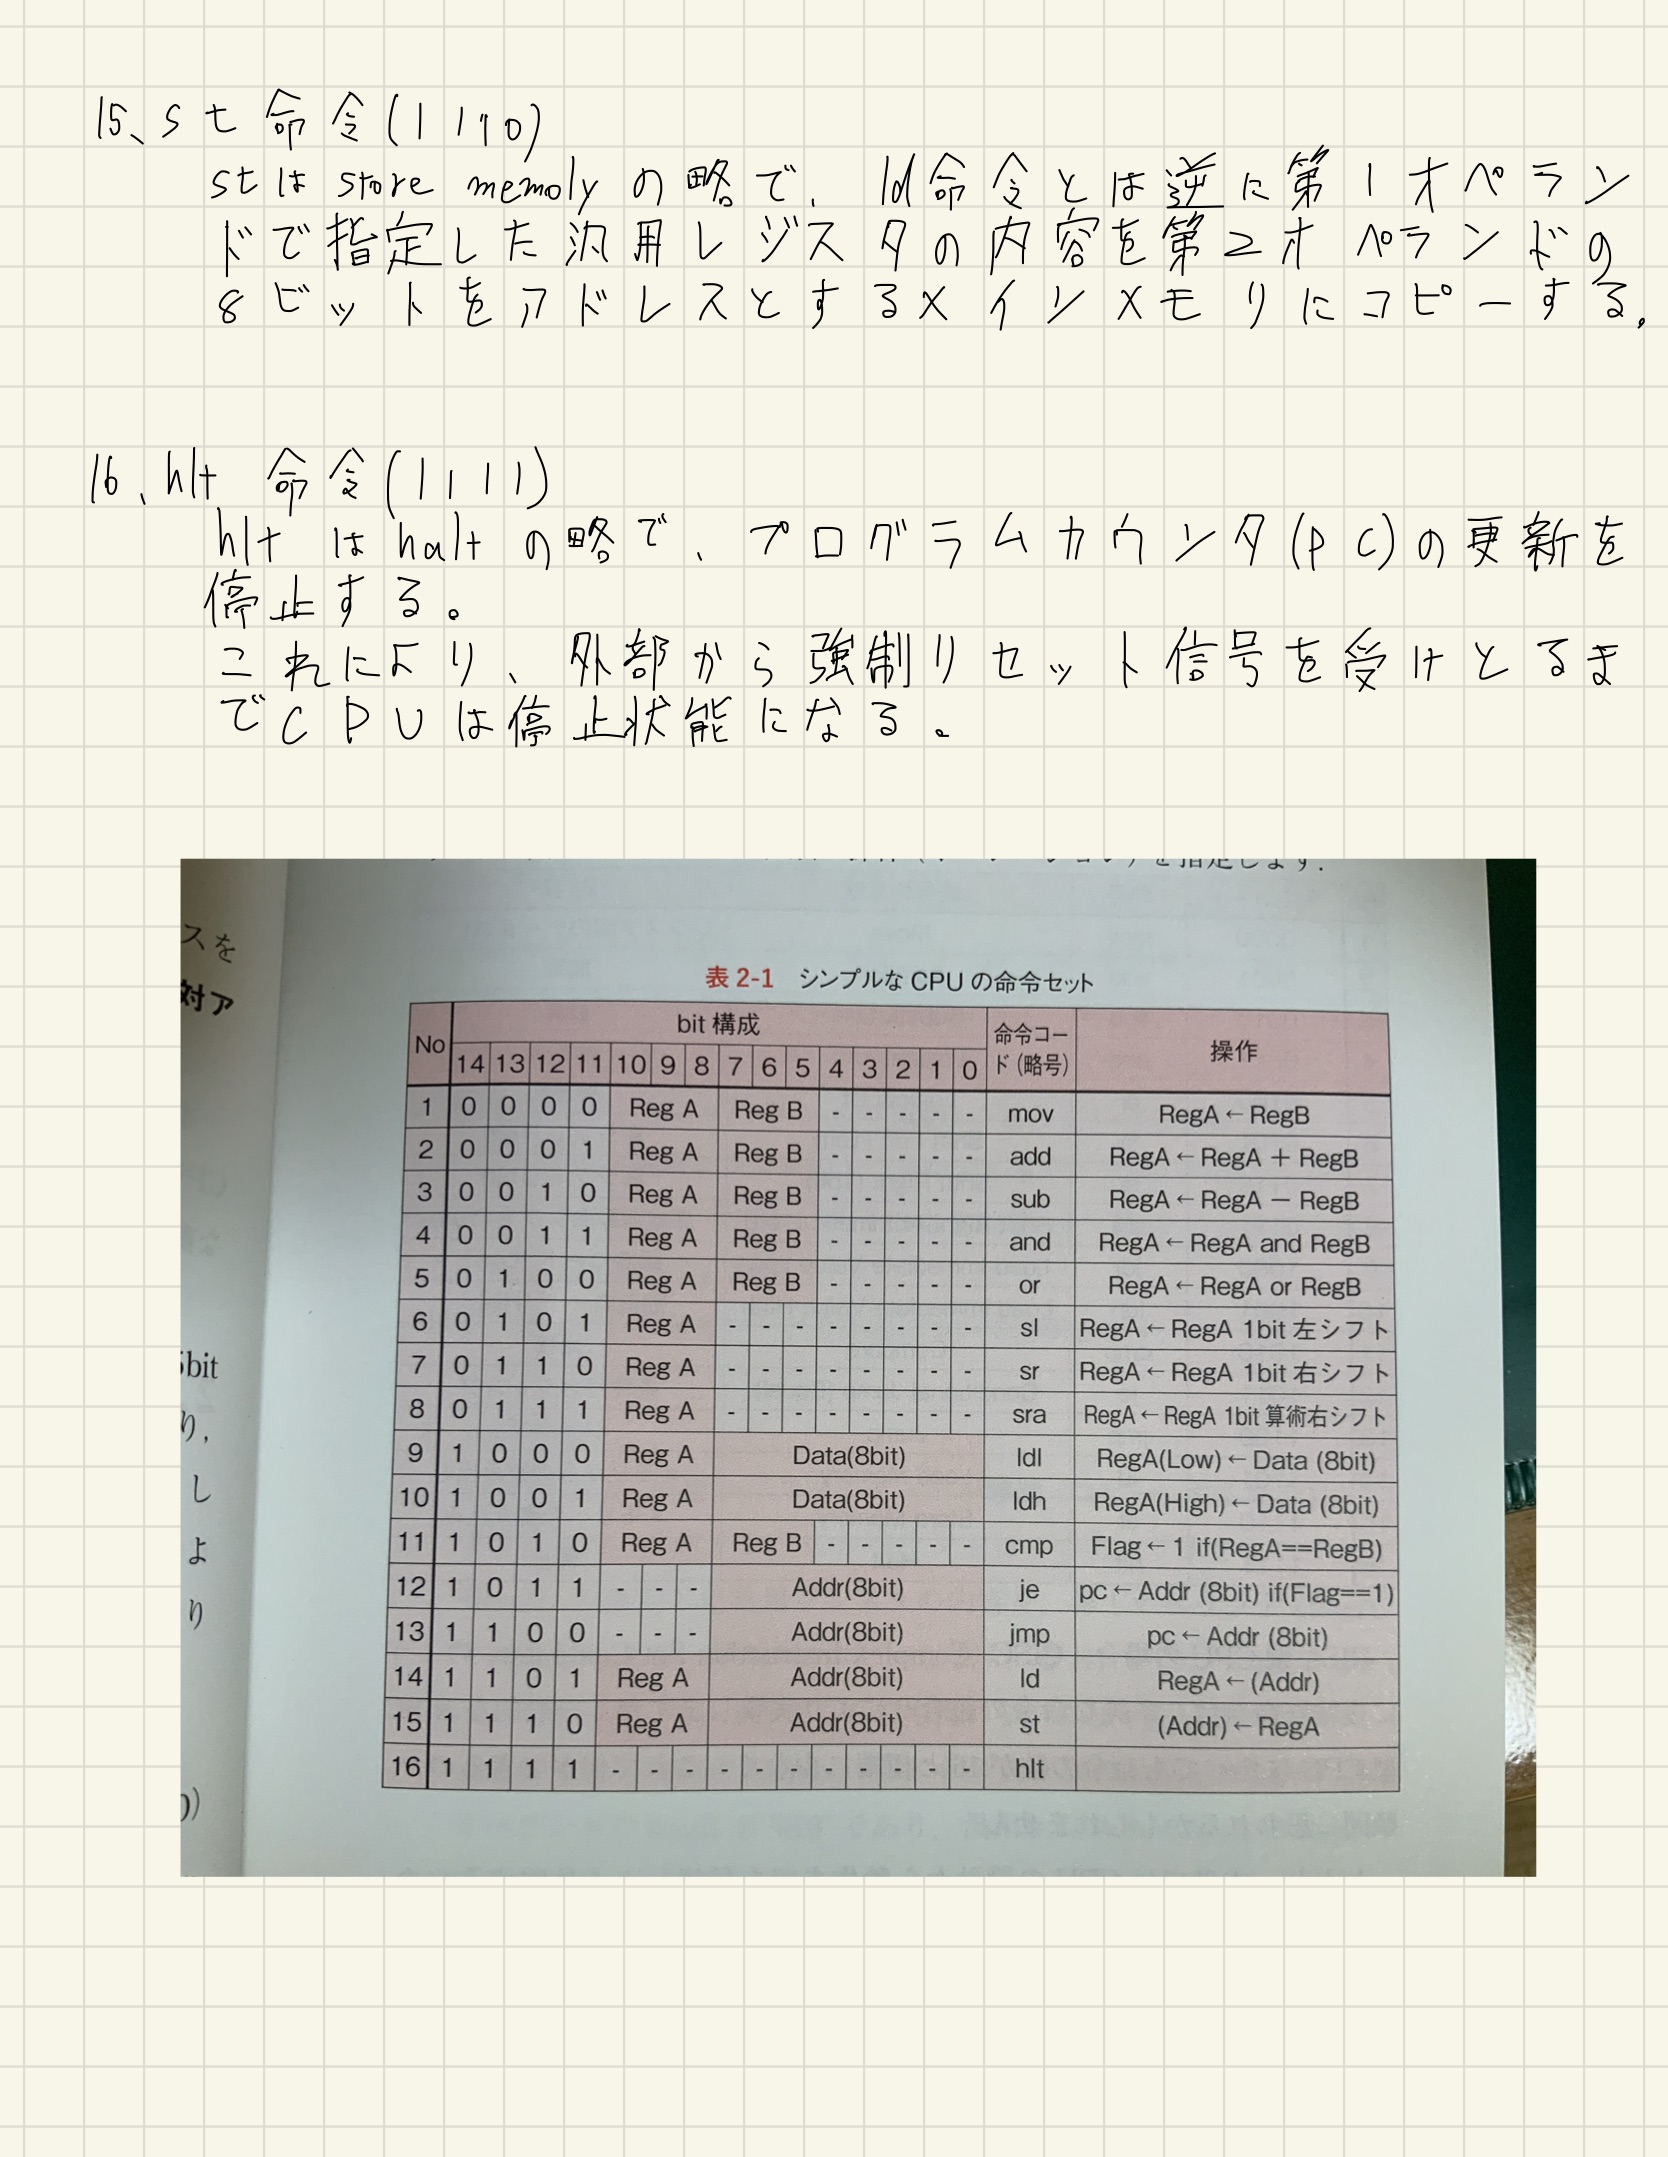 15、st 命令(1110)
stは store memoly の略で、ld命令とは逆に第1オペラン
ドで指定した汎用レジスタの内容を第2オペランドの
8ビットをアドレスとするメインメモリにコピーする。
16、hlt 命令(1111)
hlt は halt の略で、プログラムカウンタ(PC)の更新を
停止する。
これにより、外部から強制リセット信号を受けとるま
でCPUは停止状態になる。
を指定します.
スを
対ア
bit
り,
し
よ
り
表 2-1 シンプルな CPU の命令セット
No bit 構成 命令コード(略号) 操作
14 13 12 11 10 9 8 7 6 5 4 3 2 1 0
1 0 0 0 0 Reg A Reg B - - - - - mov RegA ← RegB
2 0 0 0 1 Reg A Reg B - - - - - add RegA ← RegA + RegB
3 0 0 1 0 Reg A Reg B - - - - - sub RegA ← RegA − RegB
4 0 0 1 1 Reg A Reg B - - - - - and RegA ← RegA and RegB
5 0 1 0 0 Reg A Reg B - - - - - or RegA ← RegA or RegB
6 0 1 0 1 Reg A - - - - - - - - sl RegA ← RegA 1bit 左シフト
7 0 1 1 0 Reg A - - - - - - - - sr RegA ← RegA 1bit 右シフト
8 0 1 1 1 Reg A - - - - - - - - sra RegA ← RegA 1bit 算術右シフト
9 1 0 0 0 Reg A Data(8bit) ldl RegA(Low) ← Data (8bit)
10 1 0 0 1 Reg A Data(8bit) ldh RegA(High) ← Data (8bit)
11 1 0 1 0 Reg A Reg B - - - - - cmp Flag ← 1 if(RegA==RegB)
12 1 0 1 1 - - - Addr(8bit) je pc ← Addr (8bit) if(Flag==1)
13 1 1 0 0 - - - Addr(8bit) jmp pc ← Addr (8bit)
14 1 1 0 1 Reg A Addr(8bit) ld RegA ← (Addr)
15 1 1 1 0 Reg A Addr(8bit) st (Addr) ← RegA
16 1 1 1 1 - - - - - - - - - - - hlt